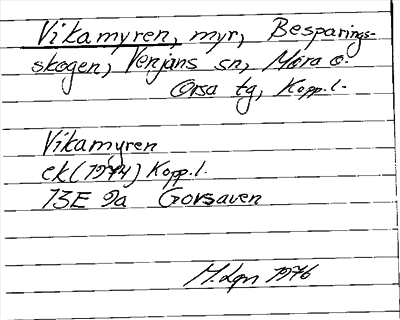 Vikamyren, myr, Besparings-
skogen, Venjans sn, Mora o.
Orsa tg, Kopp. l.
Vikamyren
ek (1974) Kopp. l.
13E 9a Gorsaven
M. Lgn 1976